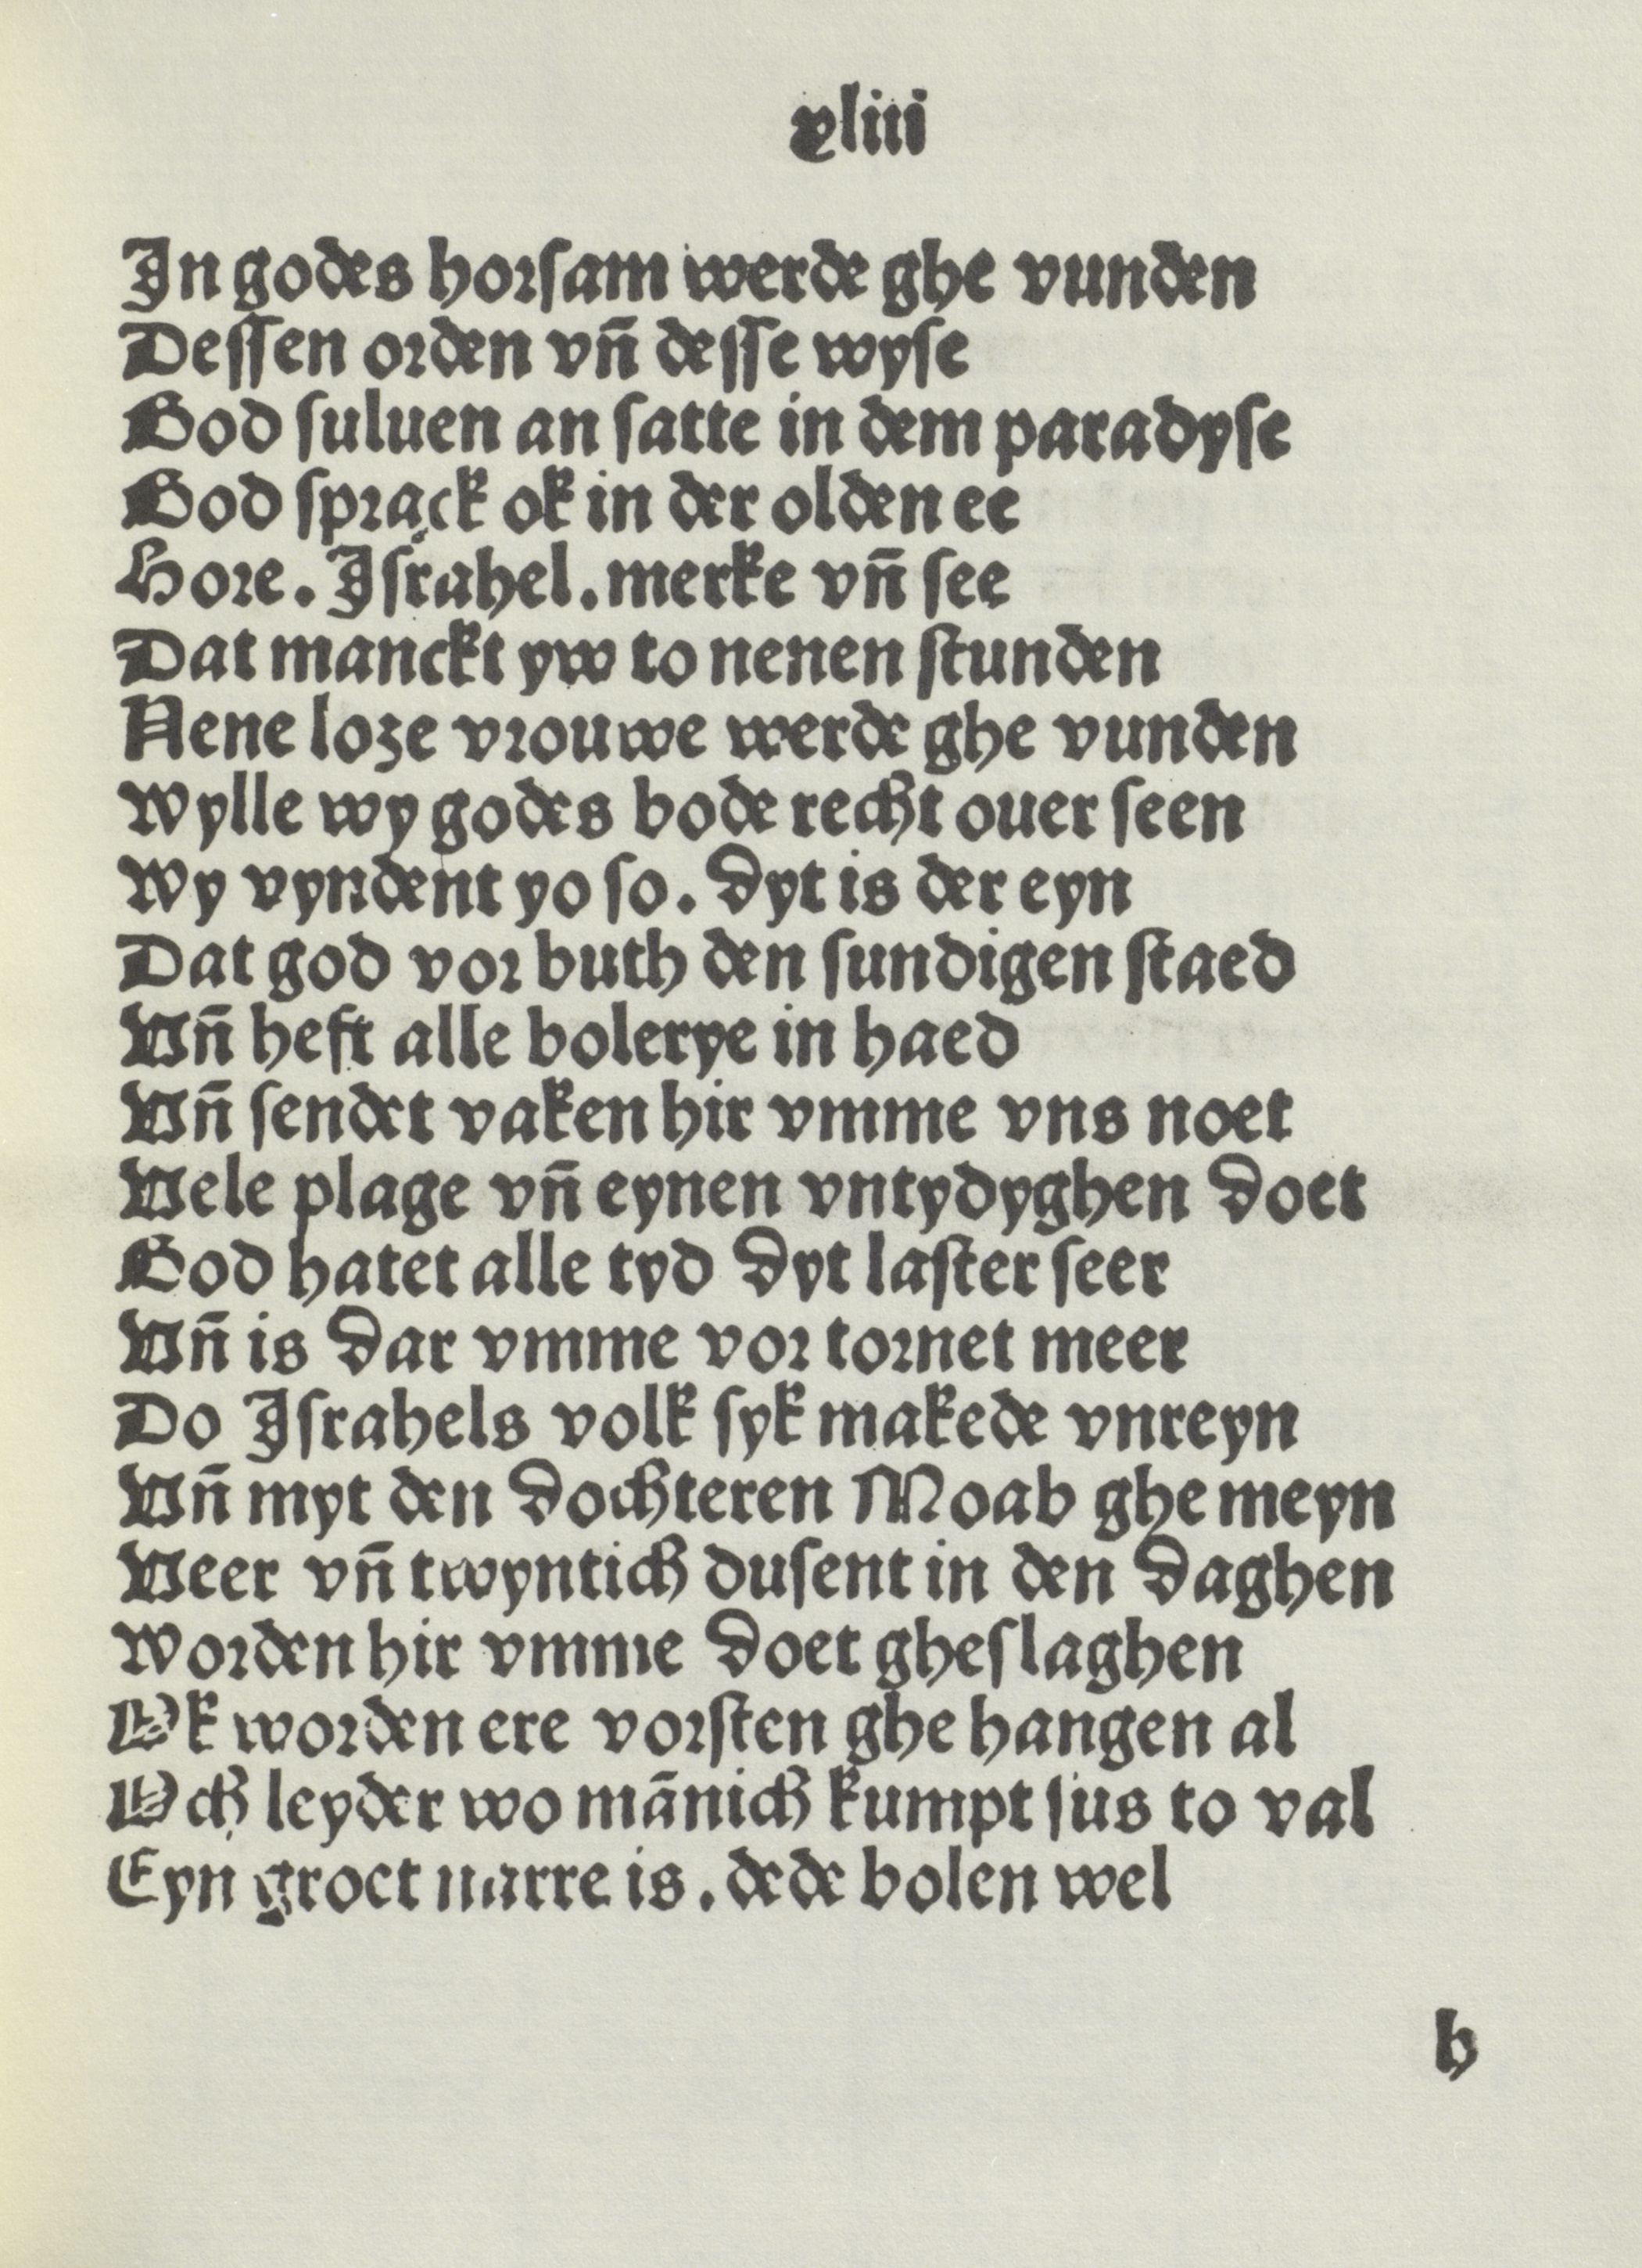 xliii
In godes horſam werde ghe vunden
Deſſen orden vn̄ deſſe wyſe
God ſuluen an ſatte in dem paradyſe
God ſprack ok in der olden ee
Hore. Iſrahel. merke vn̄ ſee
Dat manckt yw to nenen ſtunden
Nene loze vrouwe werde ghe vunden
Wylle wy godes bode recht ouer ſeen
Wy vyndent yo ſo. dyt is der eyn
Dat god vor buth den ſundigen ſtaed
Vn̄ heft alle bolerye in haed
Vn̄ ſendet vaken hir vmme vns noet
Vele plage vn̄ eynen vntydyghen doet
God hatet alle tyd dyt laſter ſeer
Vn̄ is dar vmme vor tornet meer
Do Iſrahels volk ſyk makede vnreyn
Vn̄ myt den dochteren Moab ghe meyn
Veer vn̄ twyntich duſent in den daghen
Worden hir vmme doet gheſlaghen
Ok worden ere vorſten ghe hangen al
Och leyder wo mānich kumpt ſus to val
Eyn groet narre is. de de bolen wel
h